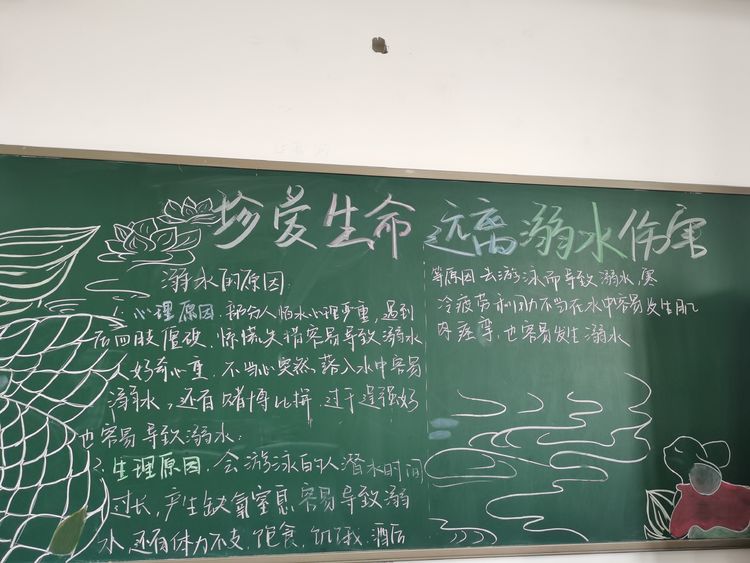 珍爱生命 远离溺水伤害
溺水的原因
1.心理原因:部分人怕水心理严重,遇到
后四肢僵硬,惊慌失措容易导致溺水
人好奇心重,不当心突然落入水中容易
溺水,还有赌博比拼,过于逞强好
也容易导致溺水.
2.生理原因.会游泳的人潜水时间
过长,产生缺氧窒息容易导致溺
水,还有体力不支,饱食,饥饿,酒后
等原因去游泳而导致溺水,寒
冷疲劳和用力不当在水中容易发生肌
肉痉挛,也容易发生溺水